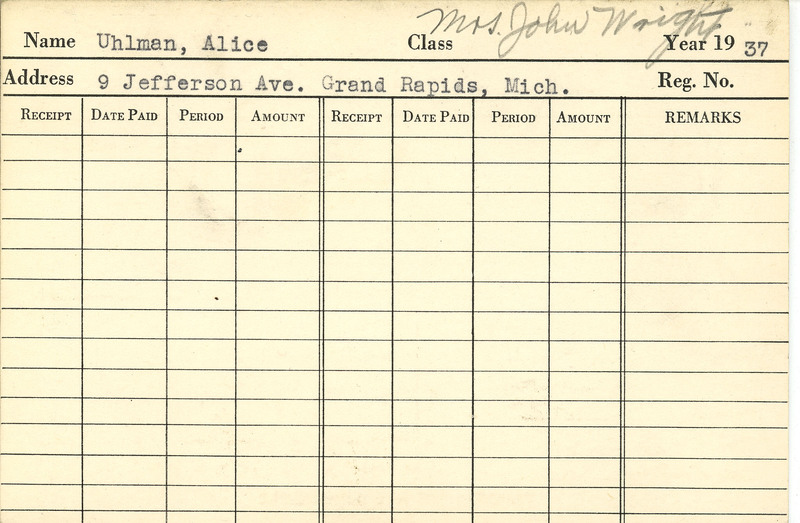 Mrs. John Wright
Name Uhlman, Alice Class Year 19 37
Address 9 Jefferson Ave. Grand Rapids, Mich. Reg. No.
RECEIPT DATE PAID PERIOD AMOUNT RECEIPT DATE PAID PERIOD AMOUNT REMARKS